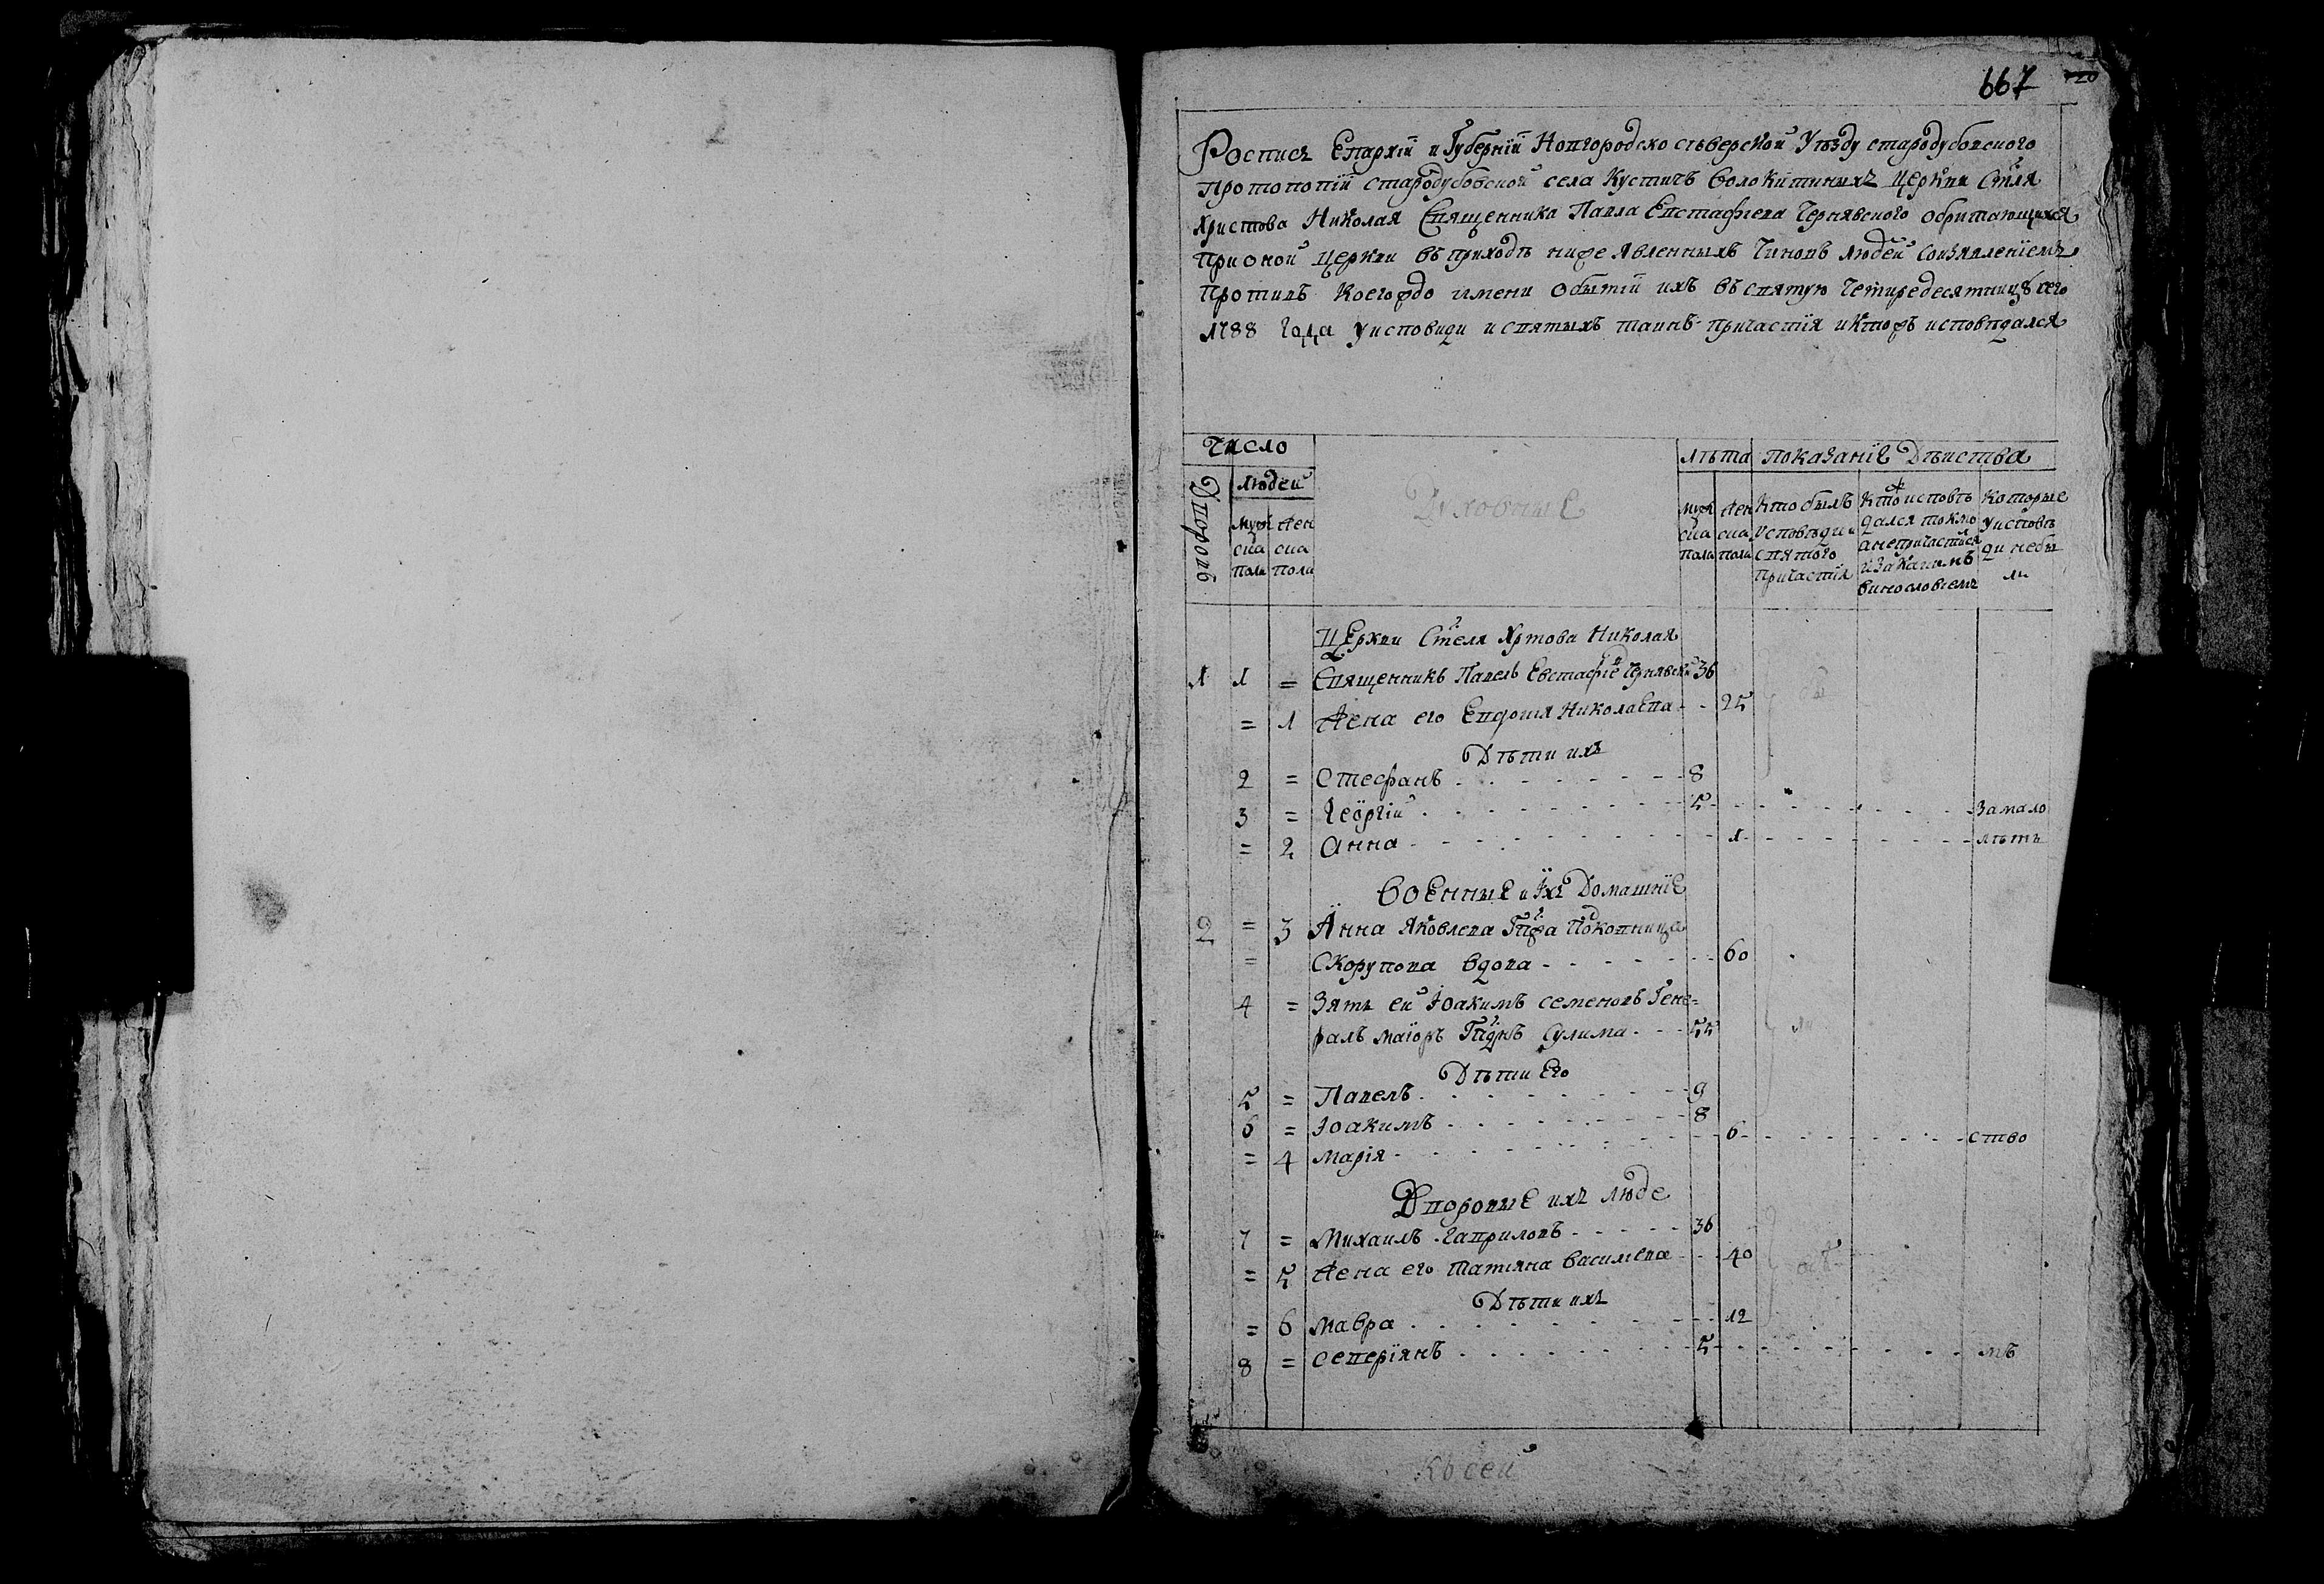 667
720
Роспись Епархїй и Губернїй Новгородско сѣверской Уѣзду стародубовского
протопопїй стародубовской села Кустичъ Волокитиныхъ церкви Стля
Христова Николая Священника Павла Евстафиева Чернявского обритающихся
при оной церкви въ приходѣ ниже явленныхъ чиновъ людей соизявленїемъ
противъ коегождо имени о бытїй ихъ въ святую четиредесятницꙋ сего
1788 года у исповиди и святыхъ таинъ причастїя и ктожъ исповѣдался
Число
лѣта показанїе дѣиства
Дворовъ
людей
Духовные
муже ска пола
жен ска пола
муже ска пола
жен ска пола
Кто былъ у исповѣди и святого причастїя
Кто исповѣдался токмо а не причастился и за какимъ винословиемъ
Которые у исповѣди небыли
Церкви Стеля Хртова Николая
1 1 = Священникъ Павелъ Евстафие Чернявски 36
= 1 Жена его Евдокия Николаева - - 25
Дѣти ихъ
2 = Стефанъ - 8
3 = Геѡргїй - 5 - За мало
= 2 Анна - 1 - лѣтъ
Военные и Ихъ Домашнїе
2 = 3 Анна Яковлева Гпжа Полковница
= Скорупова вдова - 60
4 = Зять ей Іоакимъ Семеновъ Гене=
ралъ маїоръ Гпднъ Сулима - 55
Дѣти Его
5 = Павелъ - 9
6 = Іоакимъ - 8
= 4 Марїя - 6 - ство
Дворовые ихъ люде
7 = Михаилъ Гавриловъ - 36
= 5 Жена его Татияна Василиева - 40
Дѣти ихъ
= 6 Мавра - 12
8 = Северїянъ - 5 - мъ
Къ сей